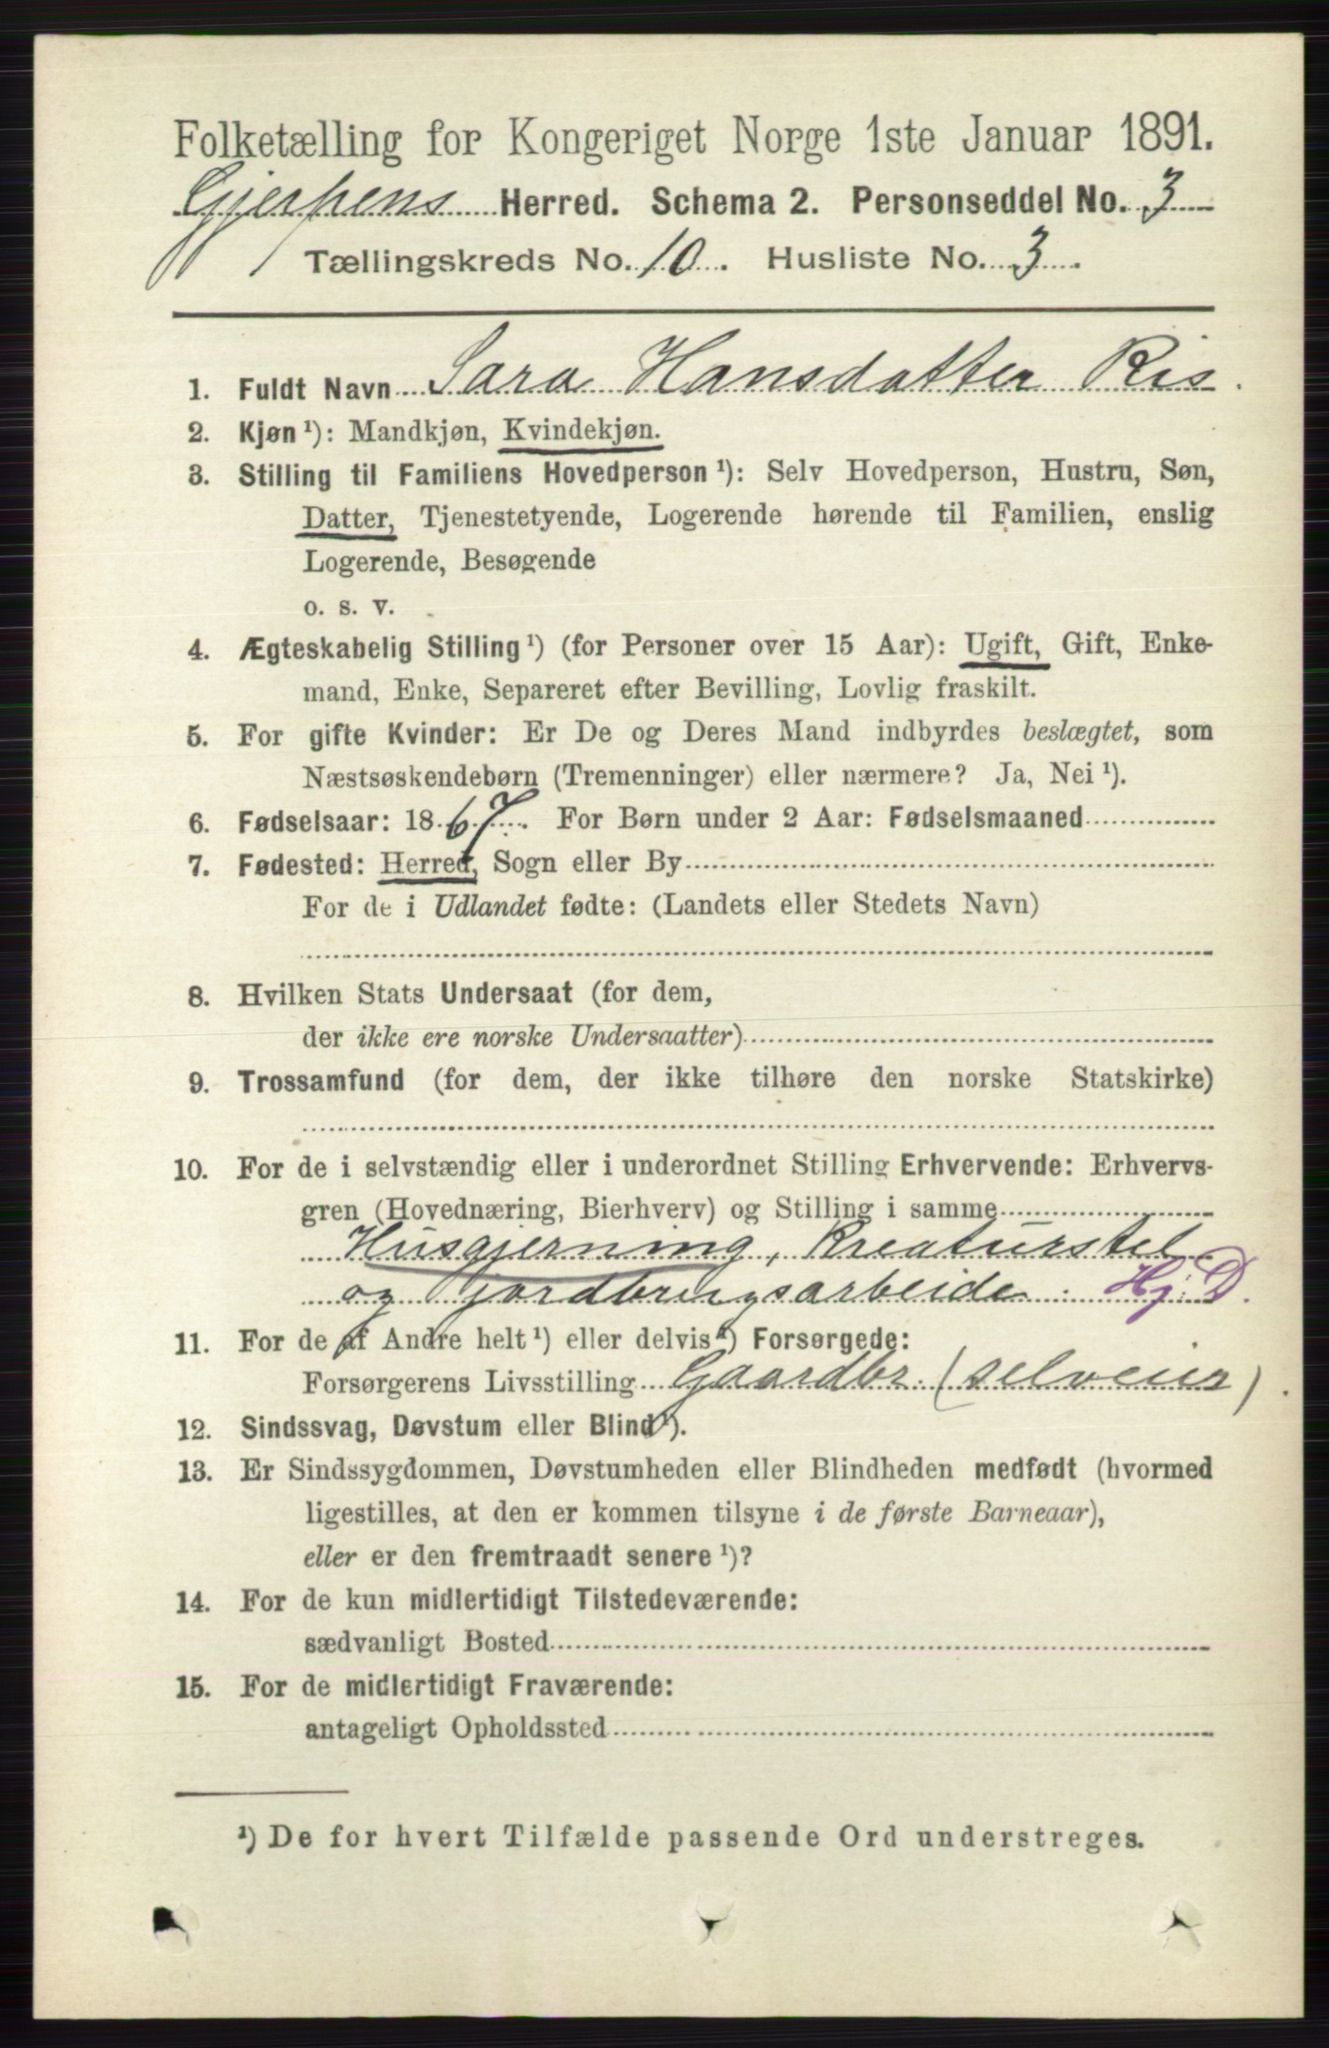 Folketælling for Kongeriget Norge 1ste Januar 1891.
Gjerpens Herred. Schema 2. Personseddel No. 3
Tællingskreds No. 10. Husliste No. 3.
1. Fuldt Navn Sara Hansdatter Ris.
2. Kjøn ¹): Mandkjøn, Kvindekjøn.
3. Stilling til Familiens Hovedperson ¹): Selv Hovedperson, Hustru, Søn,
Datter, Tjenestetyende, Logerende hørende til Familien, enslig
Logerende, Besøgende
o. s. v.
4. Ægteskabelig Stilling ¹) (for Personer over 15 Aar): Ugift, Gift, Enke-
mand, Enke, Separeret efter Bevilling, Lovlig fraskilt.
5. For gifte Kvinder: Er De og Deres Mand indbyrdes beslægtet, som
Næstsøskendebørn (Tremenninger) eller nærmere? Ja, Nei ¹).
6. Fødselsaar: 1867. For Børn under 2 Aar: Fødselsmaaned
7. Fødested: Herred, Sogn eller By
For de i Udlandet fødte: (Landets eller Stedets Navn)
8. Hvilken Stats Undersaat (for dem,
der ikke ere norske Undersaatter)
9. Trossamfund (for dem, der ikke tilhøre den norske Statskirke)
10. For de i selvstændig eller i underordnet Stilling Erhvervende: Erhvervs-
gren (Hovednæring, Bierhverv) og Stilling i samme
Husgjerning, Kreaturstel
og jordbrugsarbeide. Hj. D.
11. For de af Andre helt ¹) eller delvis ¹) Forsørgede:
Forsørgerens Livsstilling Gaardbr. (selveier).
12. Sindssvag, Døvstum eller Blind ¹).
13. Er Sindssygdommen, Døvstumheden eller Blindheden medfødt (hvormed
ligestilles, at den er kommen tilsyne i de første Barneaar),
eller er den fremtraadt senere ¹)?
14. For de kun midlertidigt Tilstedeværende:
sædvanligt Bosted
15. For de midlertidigt Fraværende:
antageligt Opholdssted
¹) De for hvert Tilfælde passende Ord understreges.